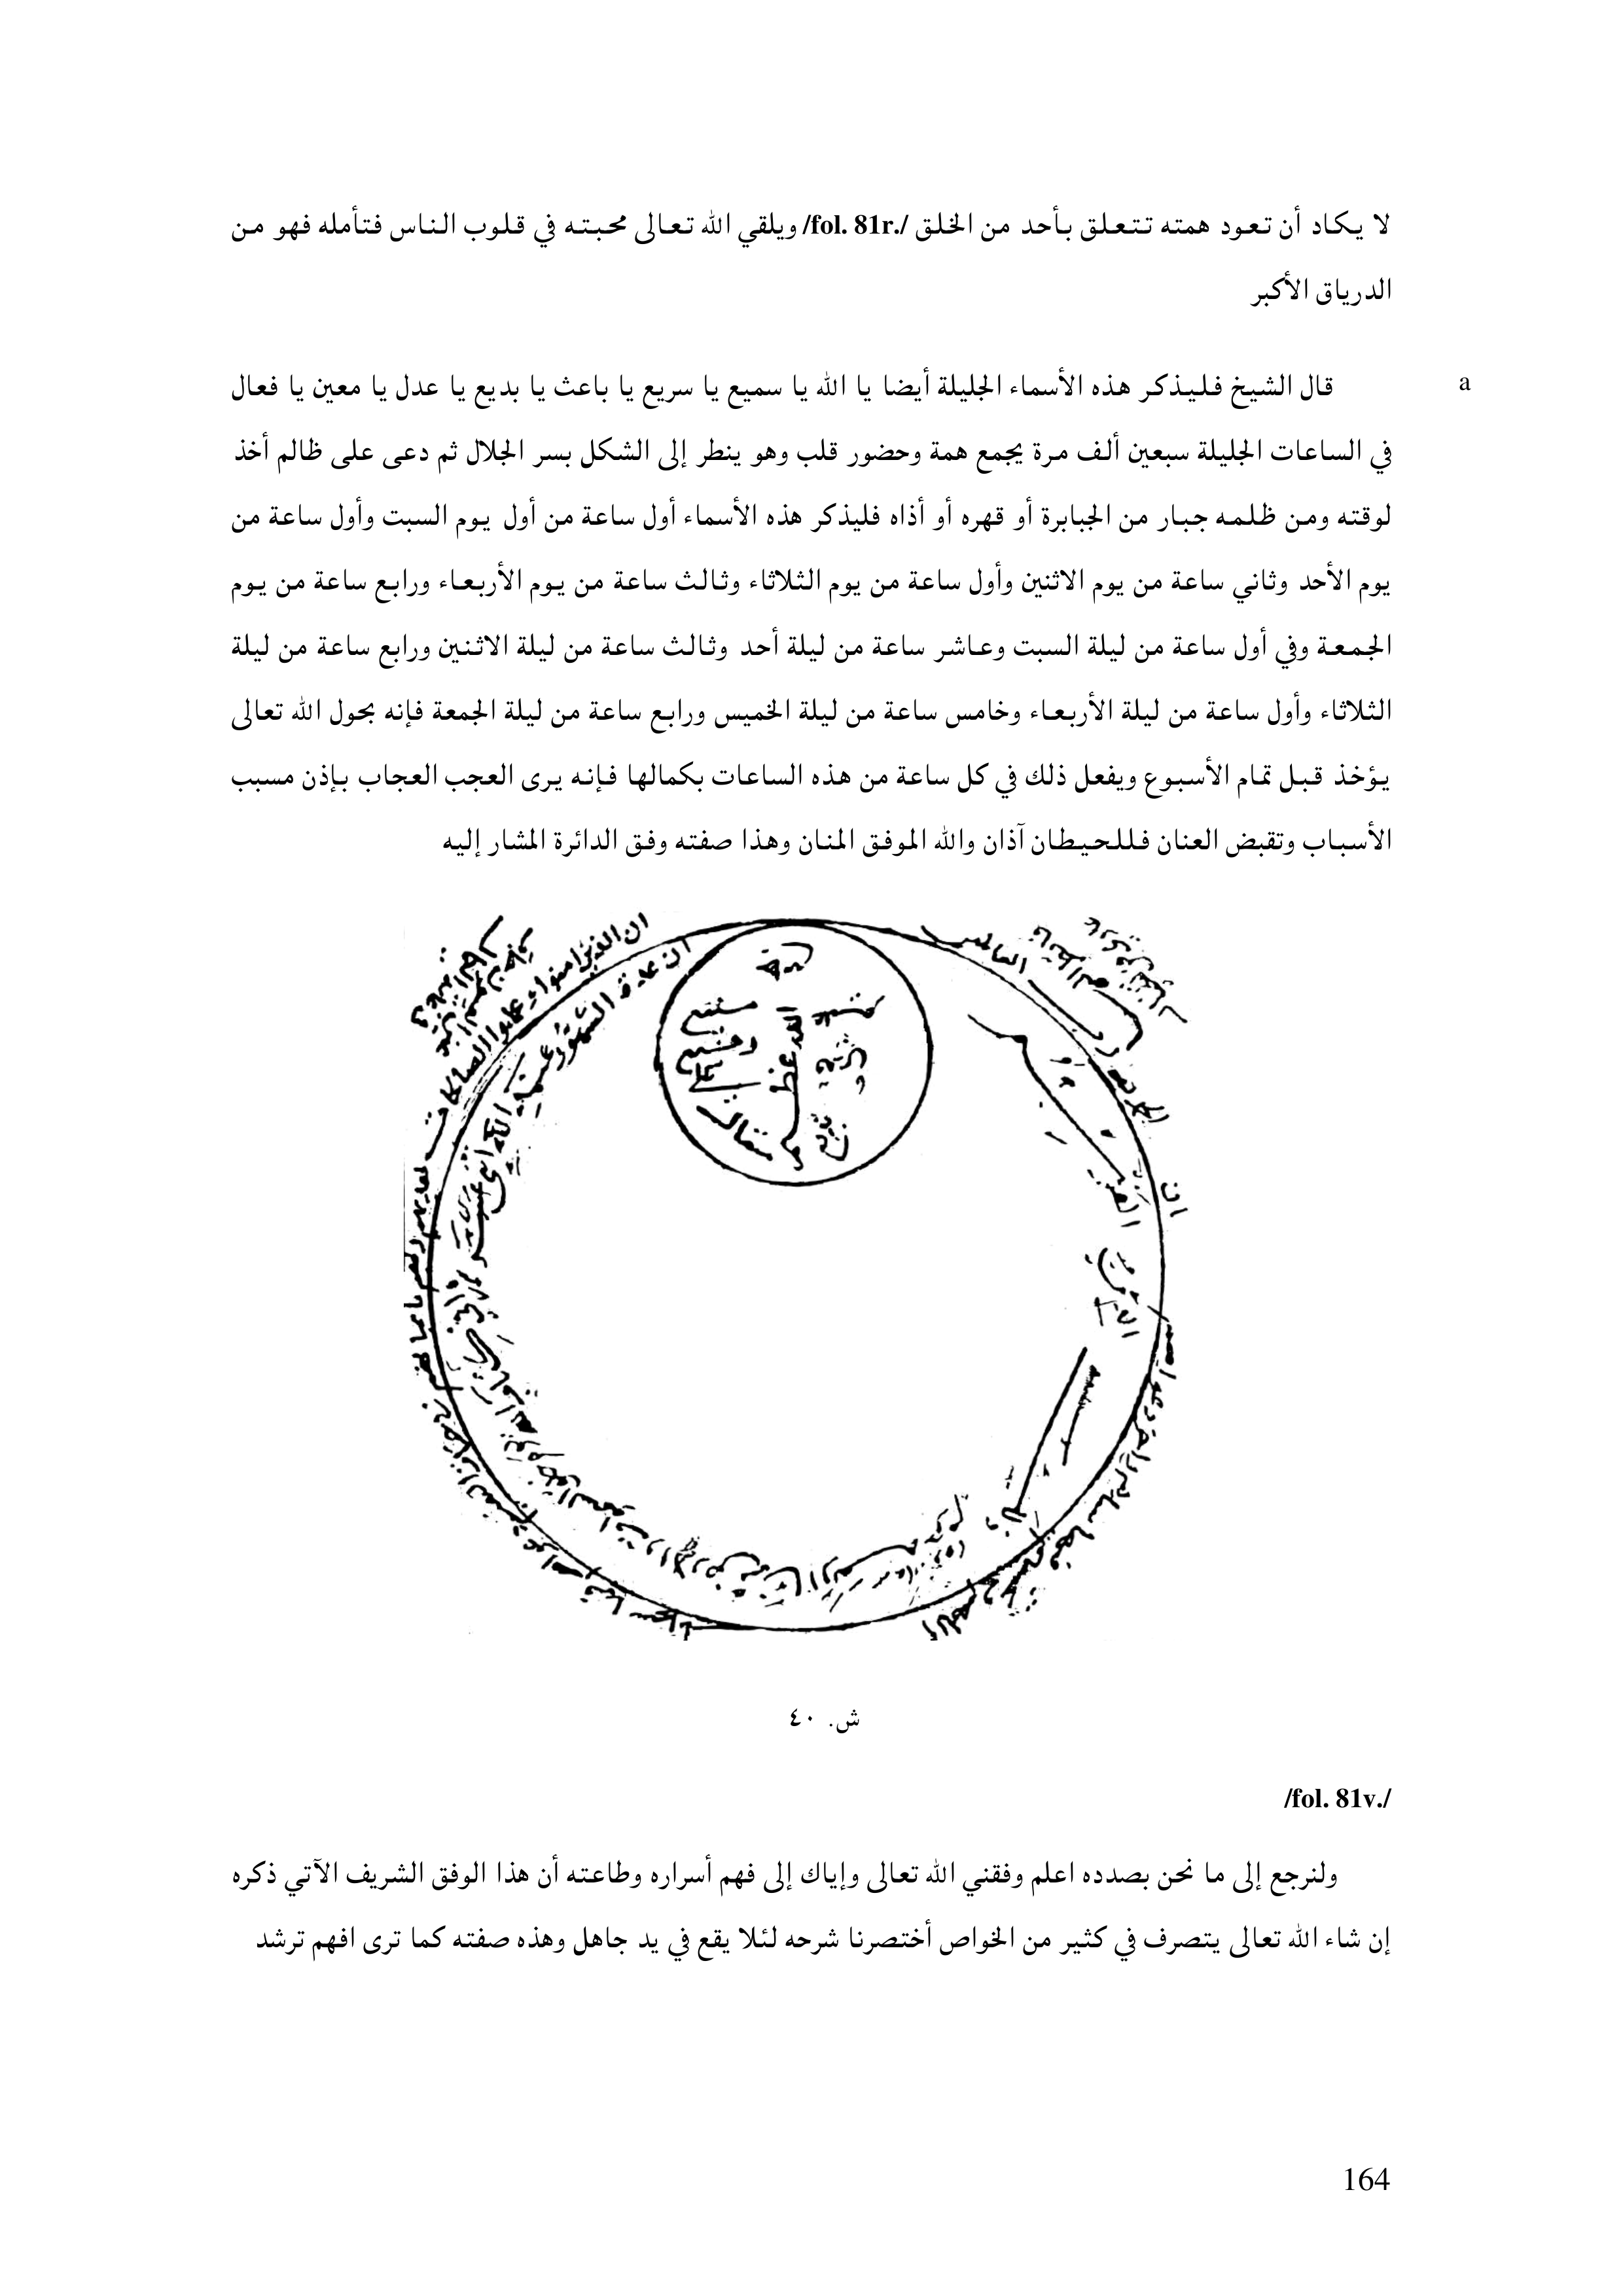 لا يكاد أن تعود همته تتعلق بأحد من الخلق /fol. 81r./ ويلقي الله تعالى محبته في قلوب الناس فتأمله فهو من
الدرياق الأكبر
a
قال الشيخ فليذكر هذه الأسماء الجليلة أيضا يا الله يا سميع يا سريع يا باعث يا بديع يا عدل يا معين يا فعال
في الساعات الجليلة سبعين ألف مرة يجمع همة وحضور قلب وهو ينطر إلى الشكل بسر الجلال ثم دعى على ظالم أخذ
لوقته ومن ظلمه جبار من الجبابرة أو قهره أو أذاه فليذكر هذه الأسماء أول ساعة من أول يوم السبت وأول ساعة من
يوم الأحد وثاني ساعة من يوم الاثنين وأول ساعة من يوم الثلاثاء وثالث ساعة من يوم الأربعاء ورابع ساعة من يوم
الجمعة وفي أول ساعة من ليلة السبت وعاشر ساعة من ليلة أحد وثالث ساعة من ليلة الاثنين ورابع ساعة من ليلة
الثلاثاء وأول ساعة من ليلة الأربعاء وخامس ساعة من ليلة الخميس ورابع ساعة من ليلة الجمعة فإنه بحول الله تعالى
يؤخذ قبل تمام الأسبوع ويفعل ذلك في كل ساعة من هذه الساعات بكمالها فإنه يرى العجب العجاب بإذن مسبب
الأسباب وتقبض العنان فللحيطان آذان والله الموفق المنان وهذا صفته وفق الدائرة المشار إليه
ان الذين امنوا وعملوا الصالحات
ان عدة الشهور عند الله اثنى
العالمين
ش. ٤٠
/fol. 81v./
ولنرجع إلى ما نحن بصدده اعلم وفقني الله تعالى وإياك إلى فهم أسراره وطاعته أن هذا الوفق الشريف الآتي ذكره
إن شاء الله تعالى يتصرف في كثير من الخواص أختصرنا شرحه لئلا يقع في يد جاهل وهذه صفته كما ترى افهم ترشد
164